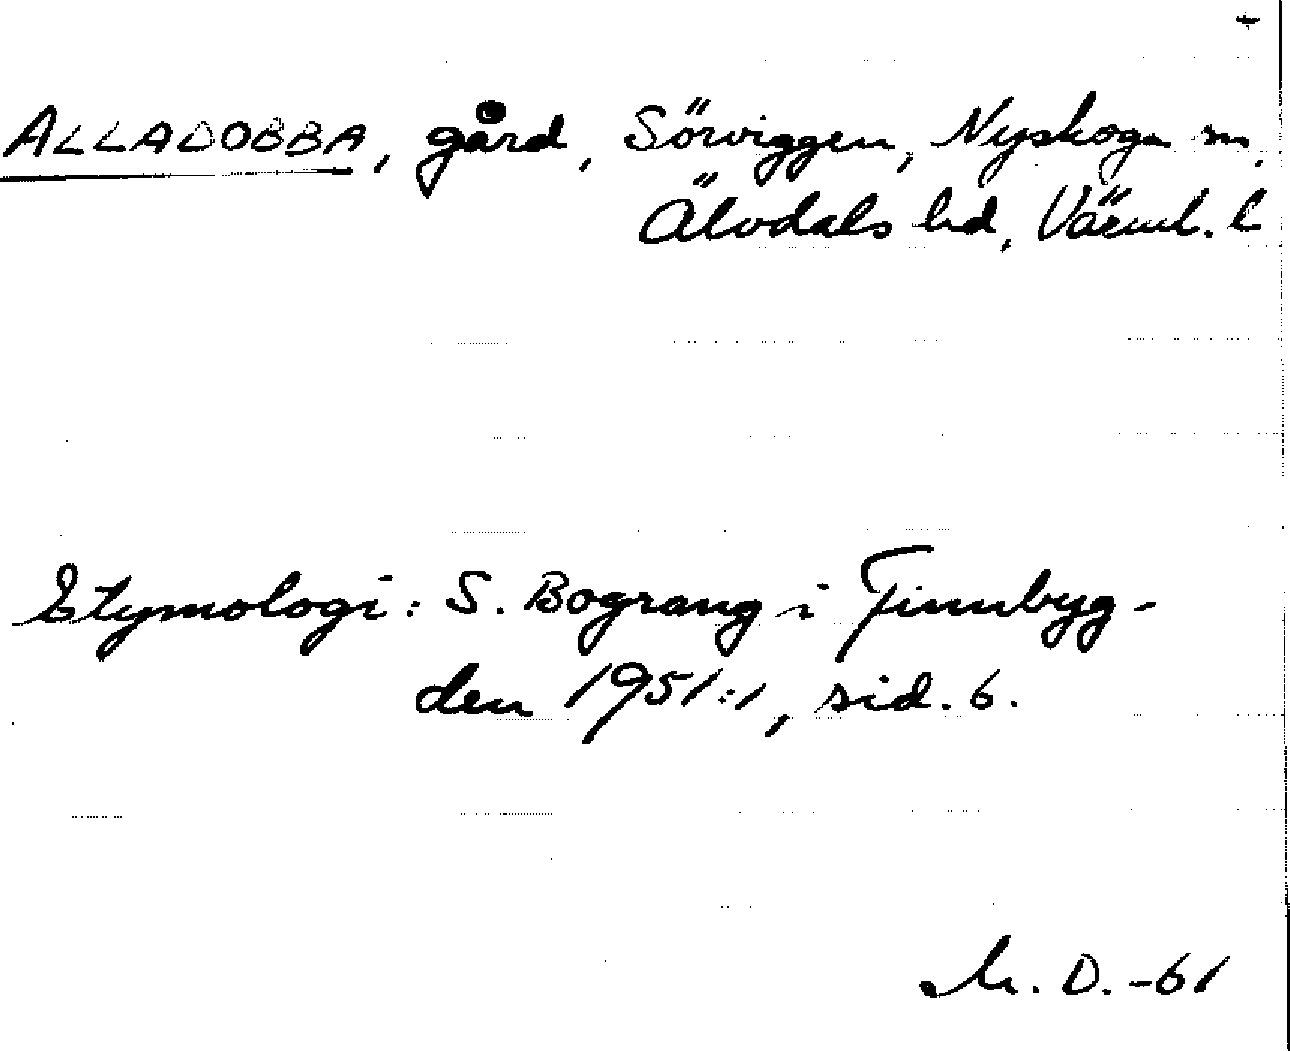 ALLADOBBA, gård, Sörviggen, Nyskoga sn,
Älvdals hd, Värml. l
Etymologi: S. Bograng i Finnbyg-
den 1951:1, sid. 6.
M. D. -61